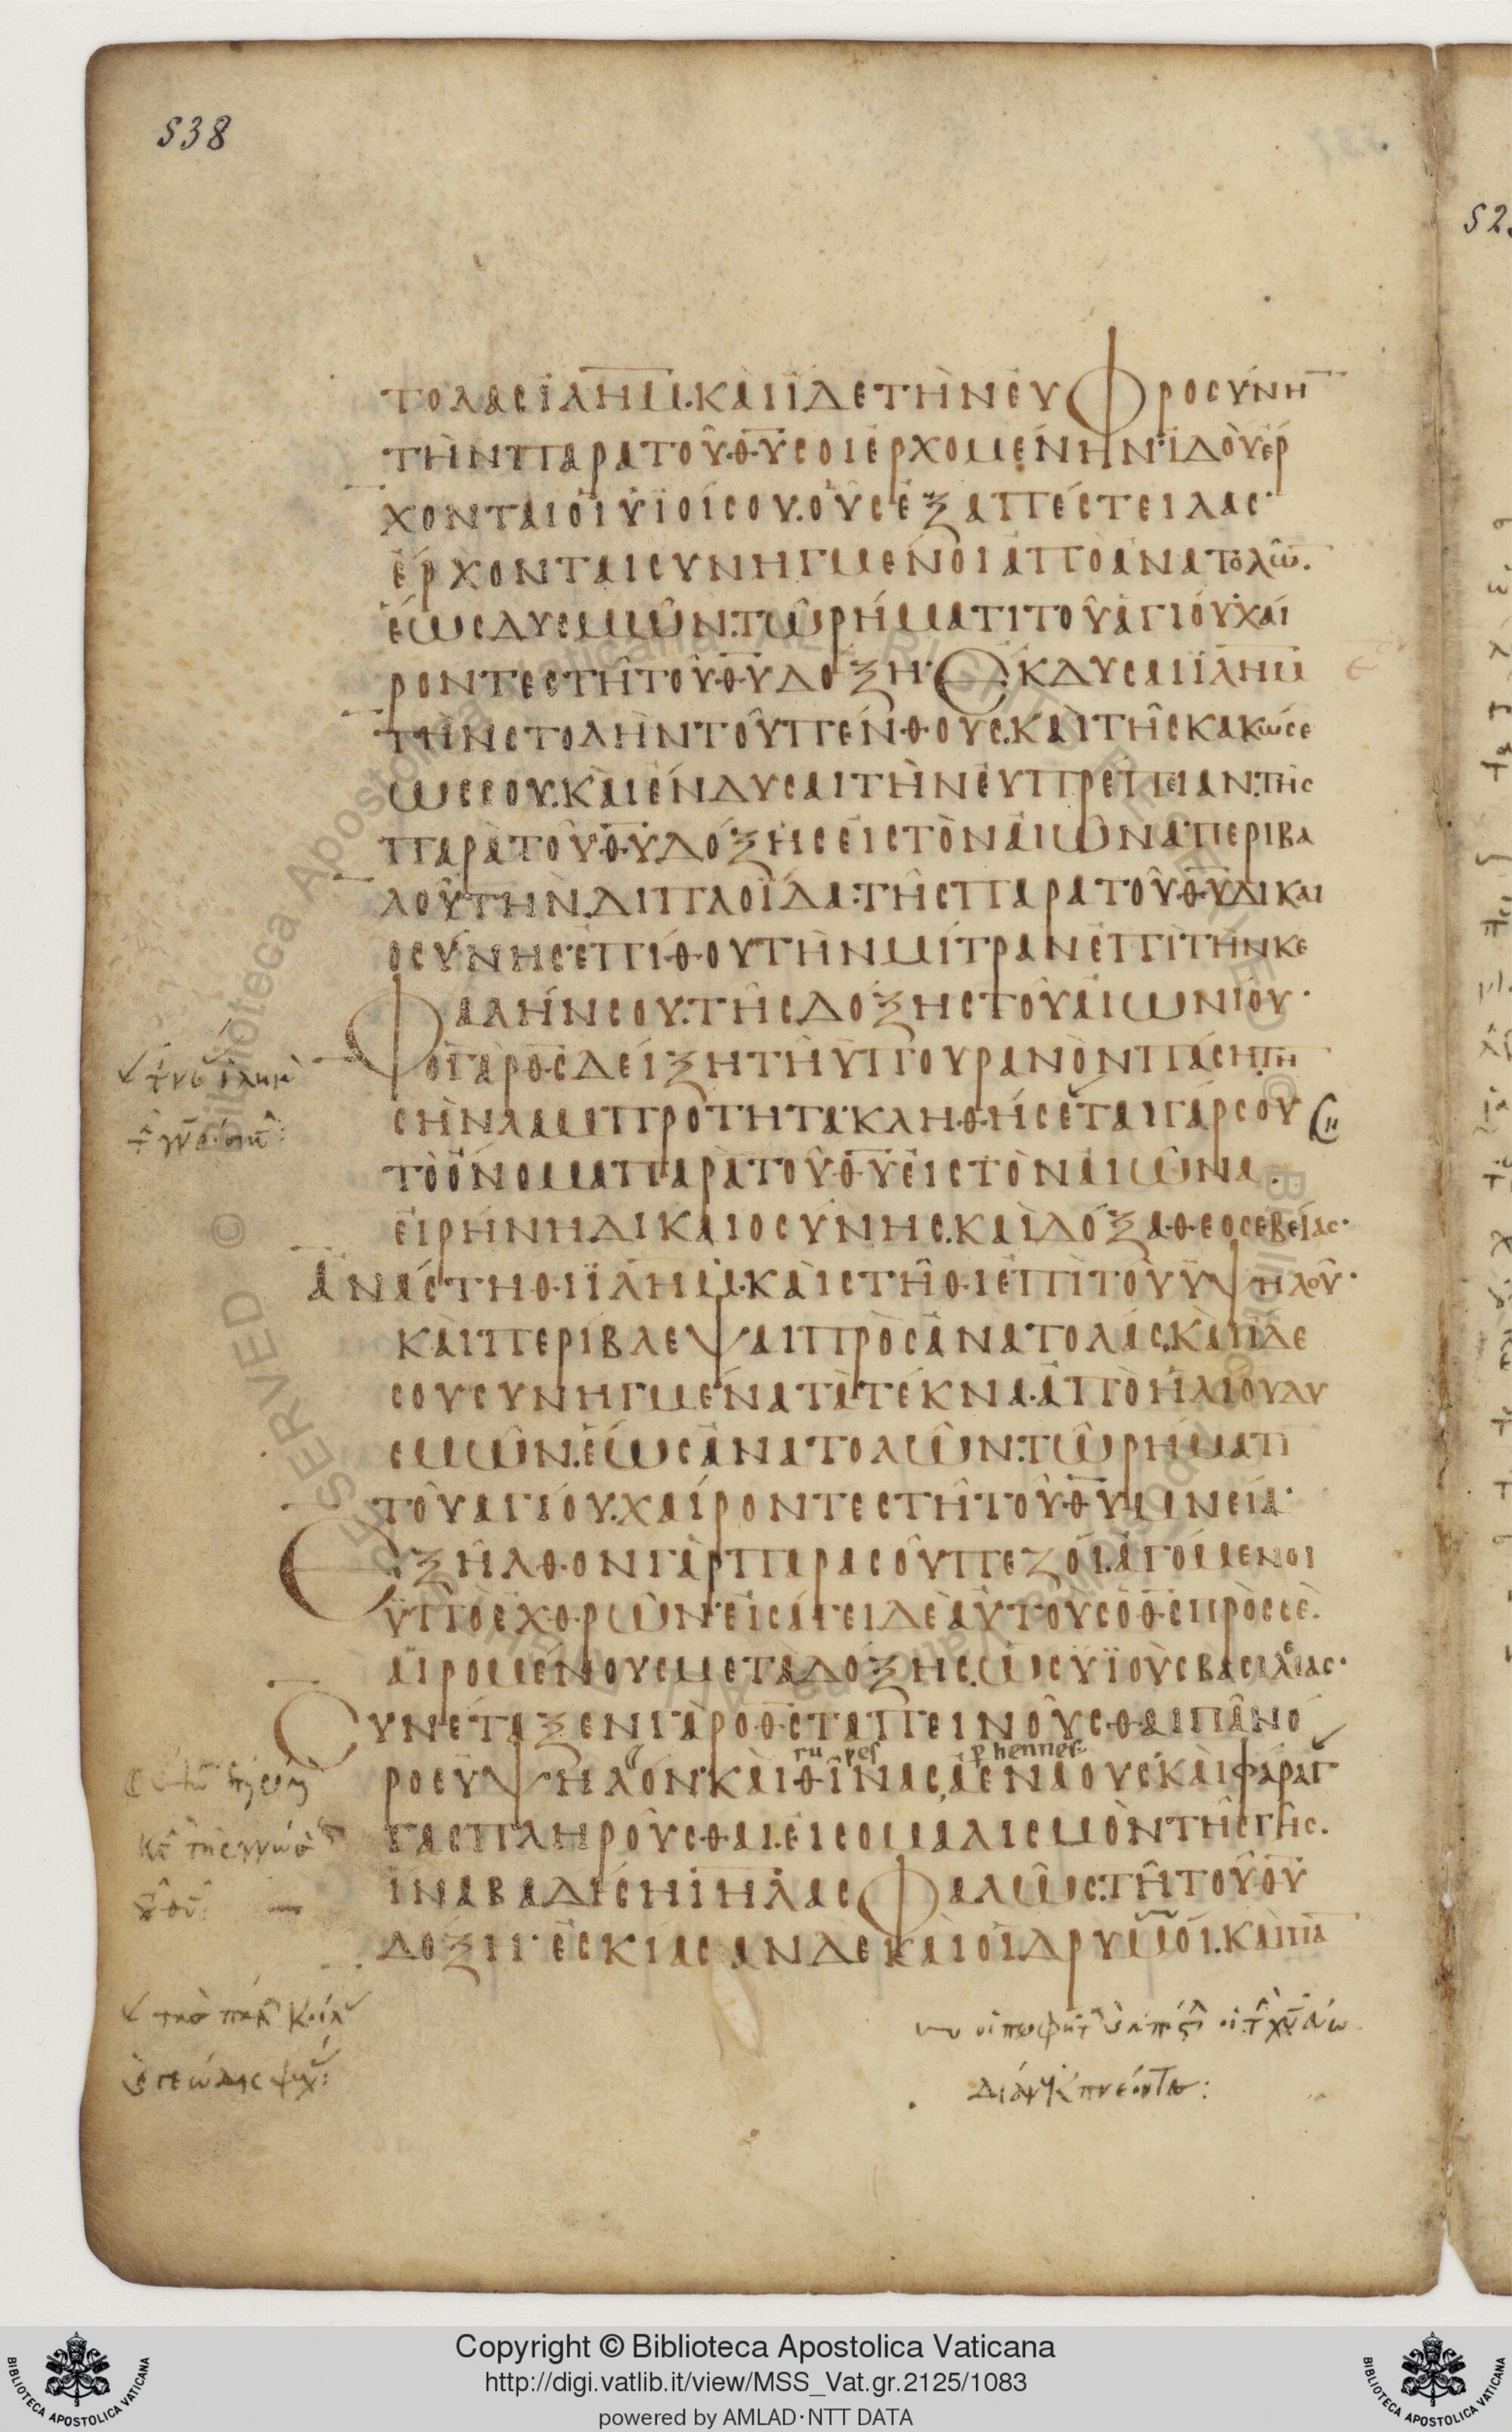 538
ΤΟΛΑΣΙΛΗΜ·ΚΑΙΙΔΕΤΗΝΕΥΦΡΟΣΥΝΗ
ΤΗΝΠΑΡΑΤΟΥΘΥΣΟΙΕΡΧΟΜΕΝΗΝ·ΙΔΟΥΕΡ
ΧΟΝΤΑΙΟΙΥΙΟΙΣΟΥ·ΟΥΣΕΞΑΠΕΣΤΕΙΛΑΣ·
ΕΡΧΟΝΤΑΙΣΥΝΗΓΜΕΝΟΙΑΠΟΑΝΑΤΟΛΩ·
ΕΩΣΔΥΣΜΩΝ·ΤΩΡΗΜΑΤΙΤΟΥΑΓΙΟΥΧΑΙ
ΡΟΝΤΕΣΤΗΤΟΥΘΥΔΟΞΗ·ΕΚΔΥΣΑΙΙΛΗΜ
ΤΗΝΣΤΟΛΗΝΤΟΥΠΕΝΘΟΥΣ·ΚΑΙΤΗΣΚΑΚΩΣΕ
ΩΣΣΟΥ·ΚΑΙΕΝΔΥΣΑΙΤΗΝΕΥΠΡΕΠΕΙΑΝ·ΤΗΣ
ΠΑΡΑΤΟΥΘΥΔΟΞΗΣΕΙΣΤΟΝΑΙΩΝΑ·ΠΕΡΙΒΑ
ΛΟΥΤΗΝΔΙΠΛΟΙΔΑ·ΤΗΣΠΑΡΑΤΟΥΘΥΔΙΚΑΙ
ΟΣΥΝΗΣ·ΕΠΙΘΟΥΤΗΝΜΙΤΡΑΝΕΠΙΤΗΝΚΕ
ΦΑΛΗΝΣΟΥ·ΤΗΣΔΟΞΗΣΤΟΥΑΙΩΝΙΟΥ·
ΟΓΑΡΘΣΔΕΙΞΗΤΗΥΠΟΥΡΑΝΟΝΠΑΣΗΤΗ
ΣΗΝΛΑΜΠΡΟΤΗΤΑ·ΚΛΗΘΗΣΕΤΑΙΓΑΡΣΟΥ
ΤΟΟΝΟΜΑΠΑΡΑΤΟΥΘΥΕΙΣΤΟΝΑΙΩΝΑ·
ΕΙΡΗΝΗΔΙΚΑΙΟΣΥΝΗΣ·ΚΑΙΔΟΞΑΘΕΟΣΕΒΕΙΑΣ·
ΑΝΑΣΤΗΘΙΙΛΗΜ·ΚΑΙΣΤΗΘΙΕΠΙΤΟΥΥΨΗΛΟΥ·
ΚΑΙΠΕΡΙΒΛΕΨΑΙΠΡΟΣΑΝΑΤΟΛΑΣ·ΚΑΙΙΔΕ
ΣΟΥΣΥΝΗΓΜΕΝΑΤΑΤΕΚΝΑ·ΑΠΟΗΛΙΟΥΔΥ
ΣΜΩΝ·ΕΩΣΑΝΑΤΟΛΩΝ·ΤΩΡΗΜΑΤΙ
ΤΟΥΑΓΙΟΥ·ΧΑΙΡΟΝΤΕΣΤΗΤΟΥΘΥΜΝΕΙΑ·
ΕΞΗΛΘΟΝΓΑΡΠΑΡΑΣΟΥΠΕΖΟΙ·ΑΓΟΜΕΝΟΙ
ΥΠΟΕΧΘΡΩΝ·ΕΙΣΑΓΕΙΔΕΑΥΤΟΥΣΟΘΣΠΡΟΣΣΕ·
ΑΙΡΟΜΕΝΟΥΣΜΕΤΑΔΟΞΗΣ·ΩΣΥΙΟΥΣΒΑΣΙΛΕΙΑΣ·
ΣΥΝΕΤΑΞΕΝΓΑΡΟΘΣΤΑΠΕΙΝΟΥΣΘΑΙΠΑΝΟ
ru pes p hennes
ΡΟΣΥΨΗΛΟΝ·ΚΑΙΘΙΝΑΣΑΕΝΑΟΥΣ·ΚΑΙΦΑΡΑΓ
ΓΑΣΠΛΗΡΟΥΣΘΑΙ·ΕΙΣΟΜΑΛΙΣΜΟΝΤΗΣΓΗΣ·
ΙΝΑΒΑΔΙΣΗΙΗΛΑΣΦΑΛΩΣ·ΤΗΤΟΥΘΥ
ΔΟΞΗ·ΕΣΚΙΑΣΑΝΔΕΚΑΙΟΙΔΡΥΜΟΙ·ΚΑΙΠΑ
Copyright © Biblioteca Apostolica Vaticana
http://digi.vatlib.it/view/MSS_Vat.gr.2125/1083
powered by AMLAD·NTT DATA
BIBLIOTECA APOSTOLICA VATICANA
BIBLIOTECA APOSTOLICA VATICANA